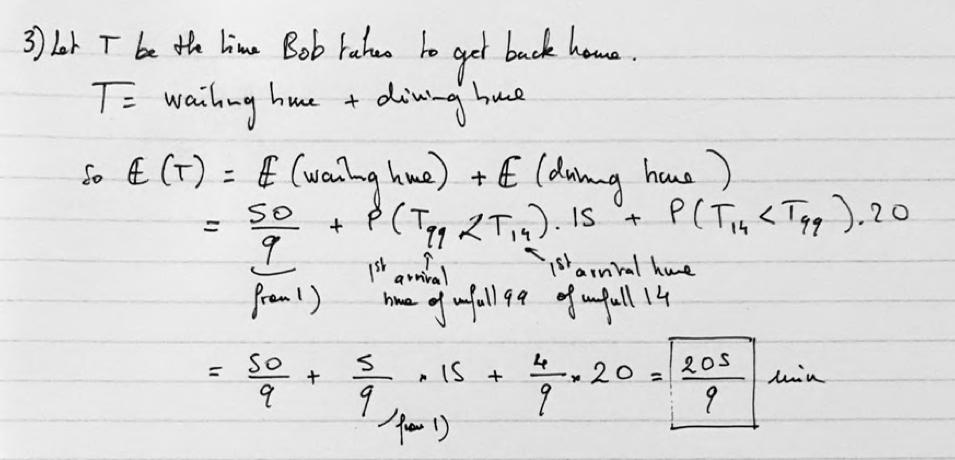 3) Let T be the time Bob takes to get back home.
T = waiting time + driving time
so E(T) = E(waiting time) + E(driving time)
= 50/9 + P(T_99 < T_14). 15 + P(T_14 < T_99). 20
from 1) 1st arrival time of unfull 99 1st arrival time of unfull 14
= 50/9 + 5/9 * 15 + 4/9 * 20 = 205/9 min
from 1)